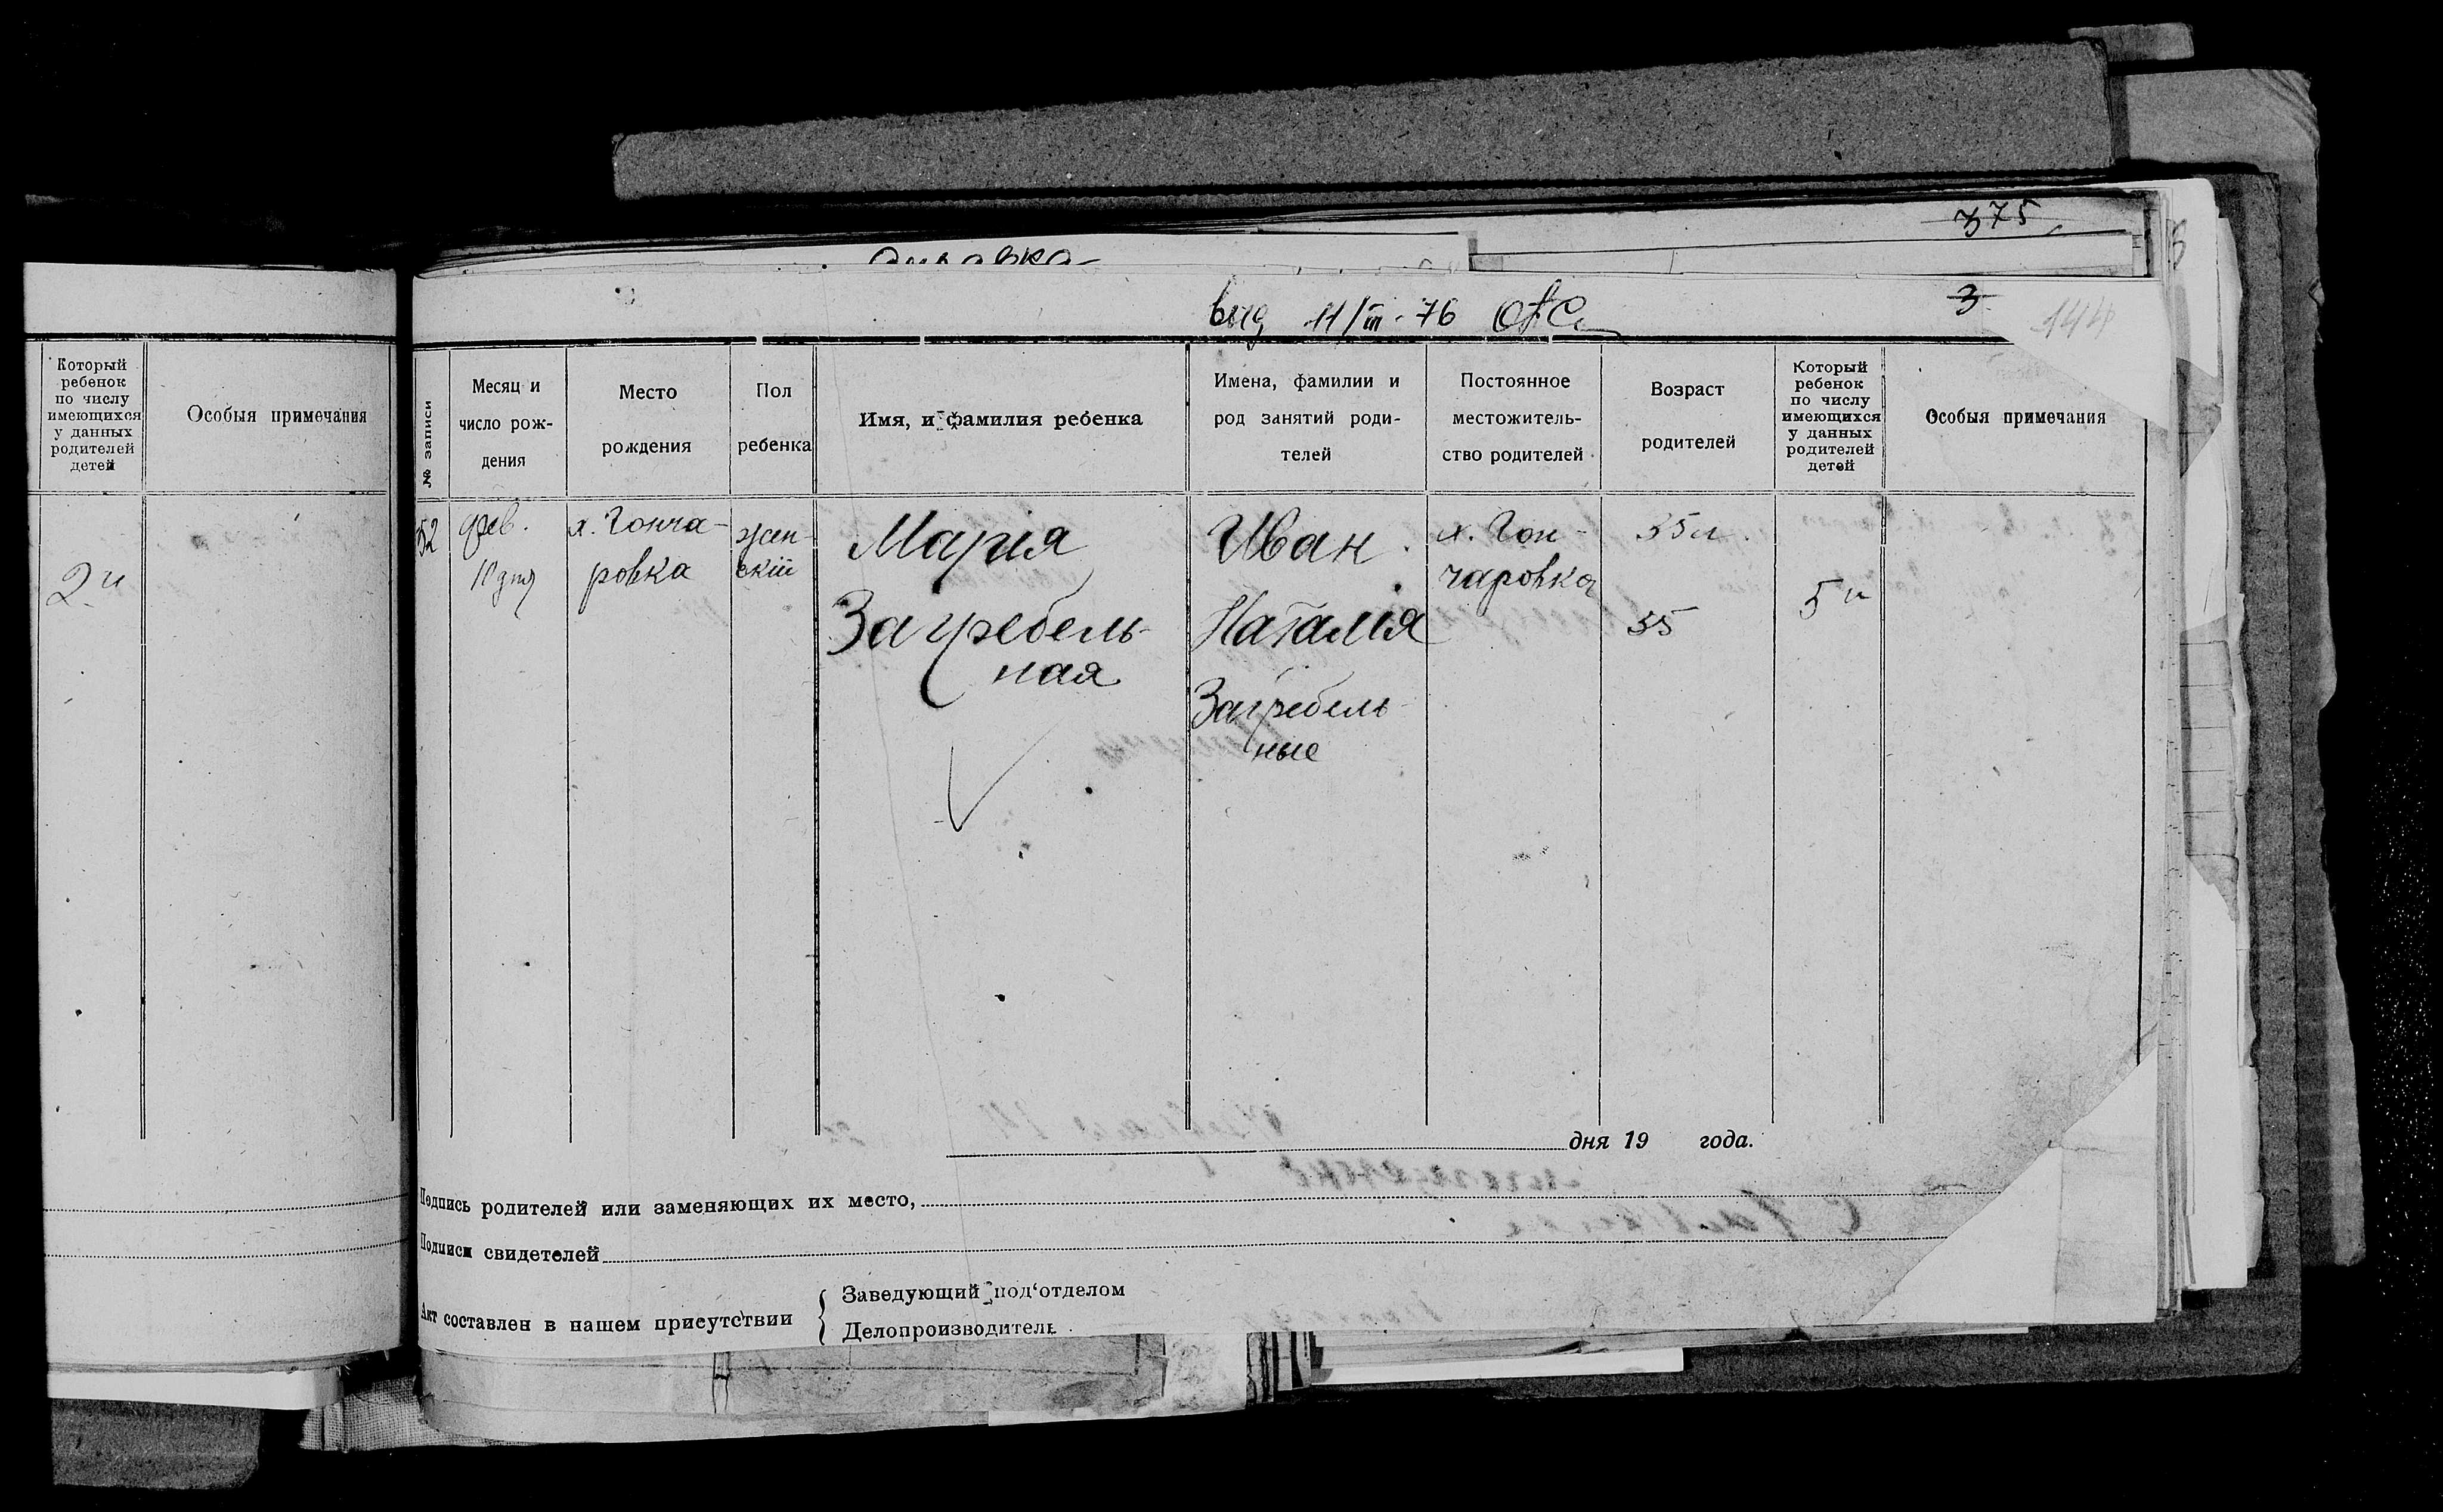 375
выд 11/III-76
3
144
Который
ребенок
по числу
имеющихся
у данных
родителей
детей
Особыя примечания
2й
№ записи
Месяц и
число рож-
дения
Место
рождения
Пол
ребенка
Имя, и фамилия ребенка
Имена, фамилии и
род занятий роди-
телей
Постоянное
местожитель-
ство родителей
Возраст
родителей
Который
ребенок
по числу
имеющихся
у данных
родителей
детей
Особыя примечания
52
фев.
10 дня
х. Гонча-
ровка
жен-
скій
Марія
Загребель-
ная
Иван
Наталія
Загребель-
ные
х. Гон-
чаровка
35 л.
35
5й
дня 19 года.
Подпись родителей или заменяющих их место,
Подписи свидетелей
Акт составлен в нашем присутствии
Заведующий под'отделом
Делопроизводитель